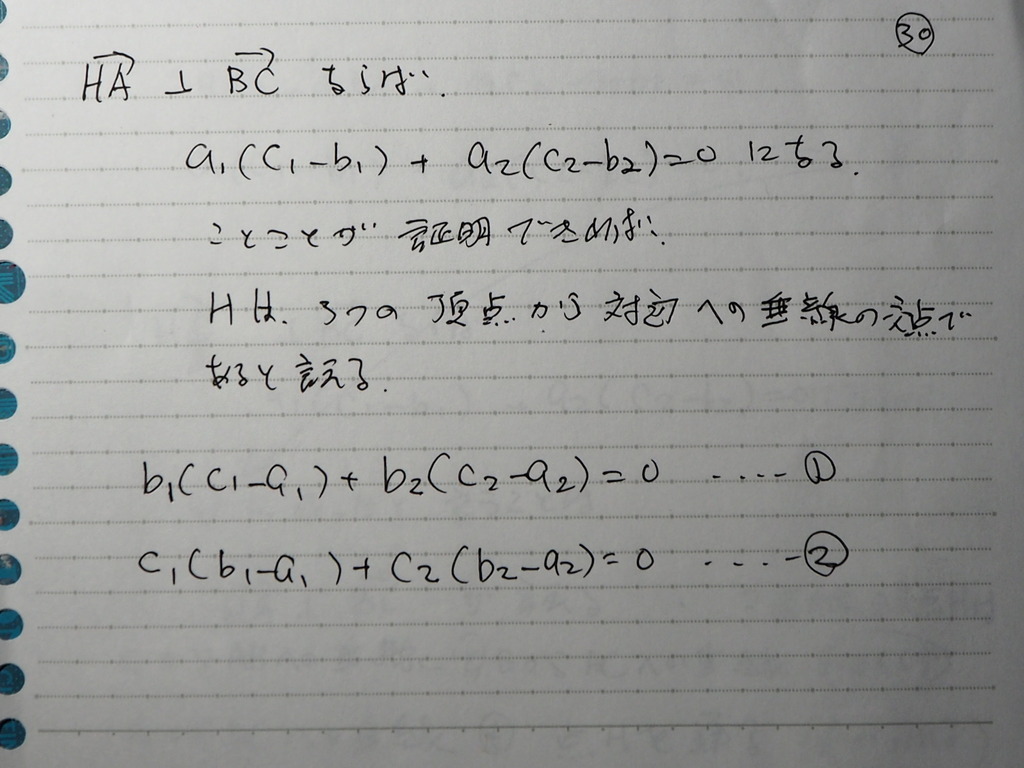 ㉚
HA ⊥ BC ならば、
a₁(c₁-b₁) + a₂(c₂-b₂)=0 になる.
ことことが 証明できれば、
Hは、3つの 頂点から 対辺への垂線の交点で
あると言える.
b₁(c₁-a₁)+ b₂(c₂-a₂)=0 ····-①
c₁(b₁-a₁)+ c₂(b₂-a₂)=0 ····-②